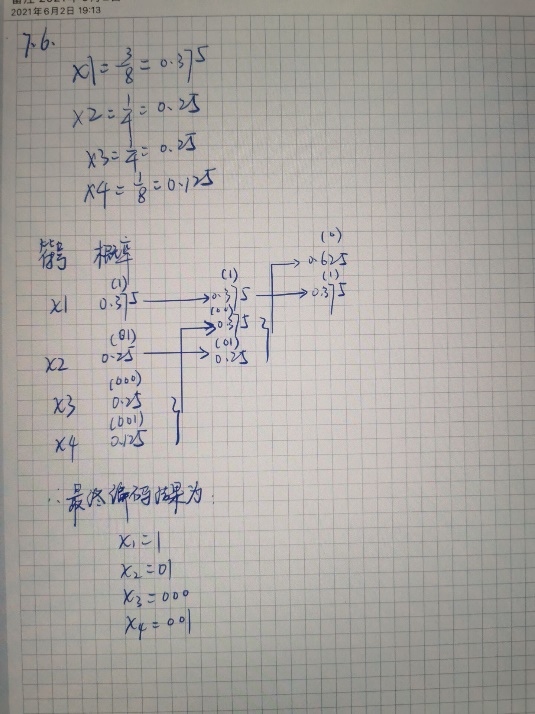 2021年6月2日 19:13
7.6.
x1 = 3/8 = 0.375
x2 = 1/4 = 0.25
x3 = 1/4 = 0.25
x4 = 1/8 = 0.125
符号 概率
(0)
0.625
(1) (1) (1)
x1 0.375 0.375 0.375
(00)
0.375
(01) (01)
x2 0.25 0.25
(000)
x3 0.25
(001)
x4 0.125
∴最终编码结果为:
x₁=1
x₂=01
x₃=000
x₄=001